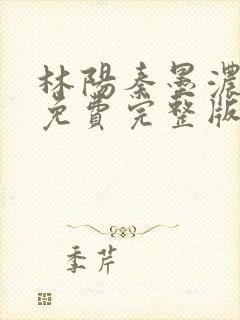 林陽秦墨濃
免費完整版
季芹